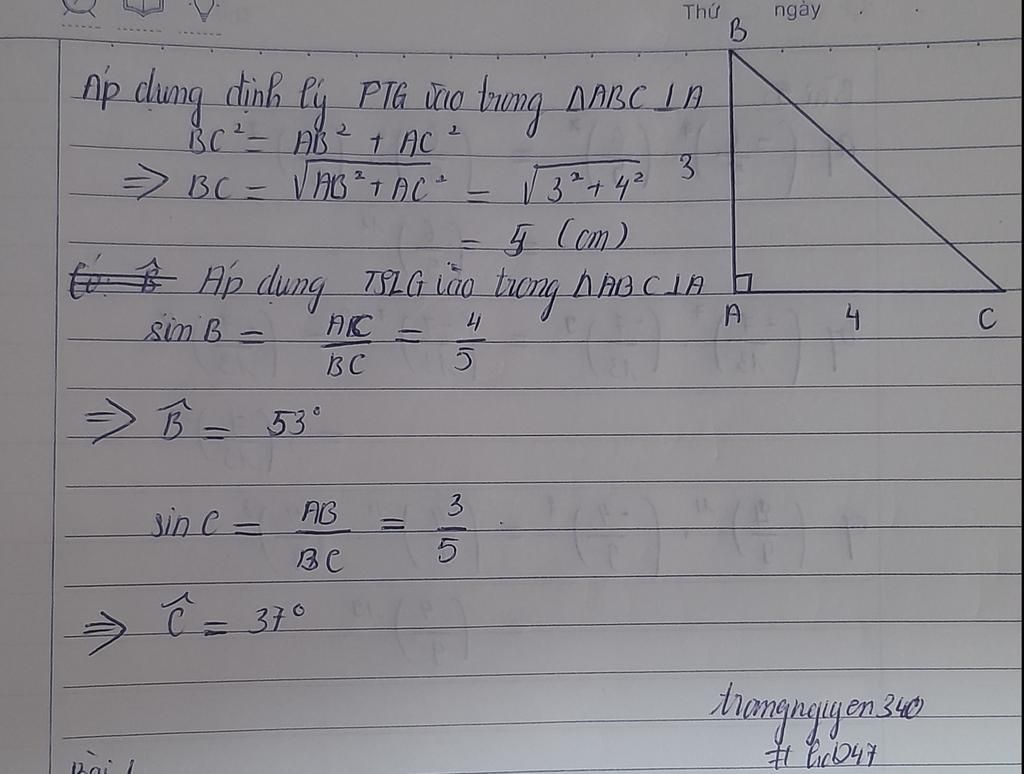 Thứ ngày
B
Áp dụng định lý PTG vào trung ΔABC ⊥ A
BC² = AB² + AC²
⇒ BC = √AB² + AC² = √3² + 4²
3
= 5 (cm)
Áp dụng TSLG vào trong ΔABC ⊥ A
A 4 C
sin B = AC/BC = 4/5
⇒ B̂ = 53°
sin C = AB/BC = 3/5
⇒ Ĉ = 37°
trangnguyen340
Bài 1